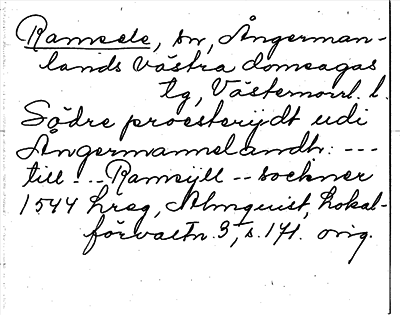 Ramsele, sn, Ångerman-
lands västra domsagas
tg, Västernorrl. l.
Södre proesterijdt udi
Ångermannelandh: ---
till -- Ramsijll -- sockner
1544 hreg, Almquist, Lokal-
förvaltn. 3, s. 171. orig.